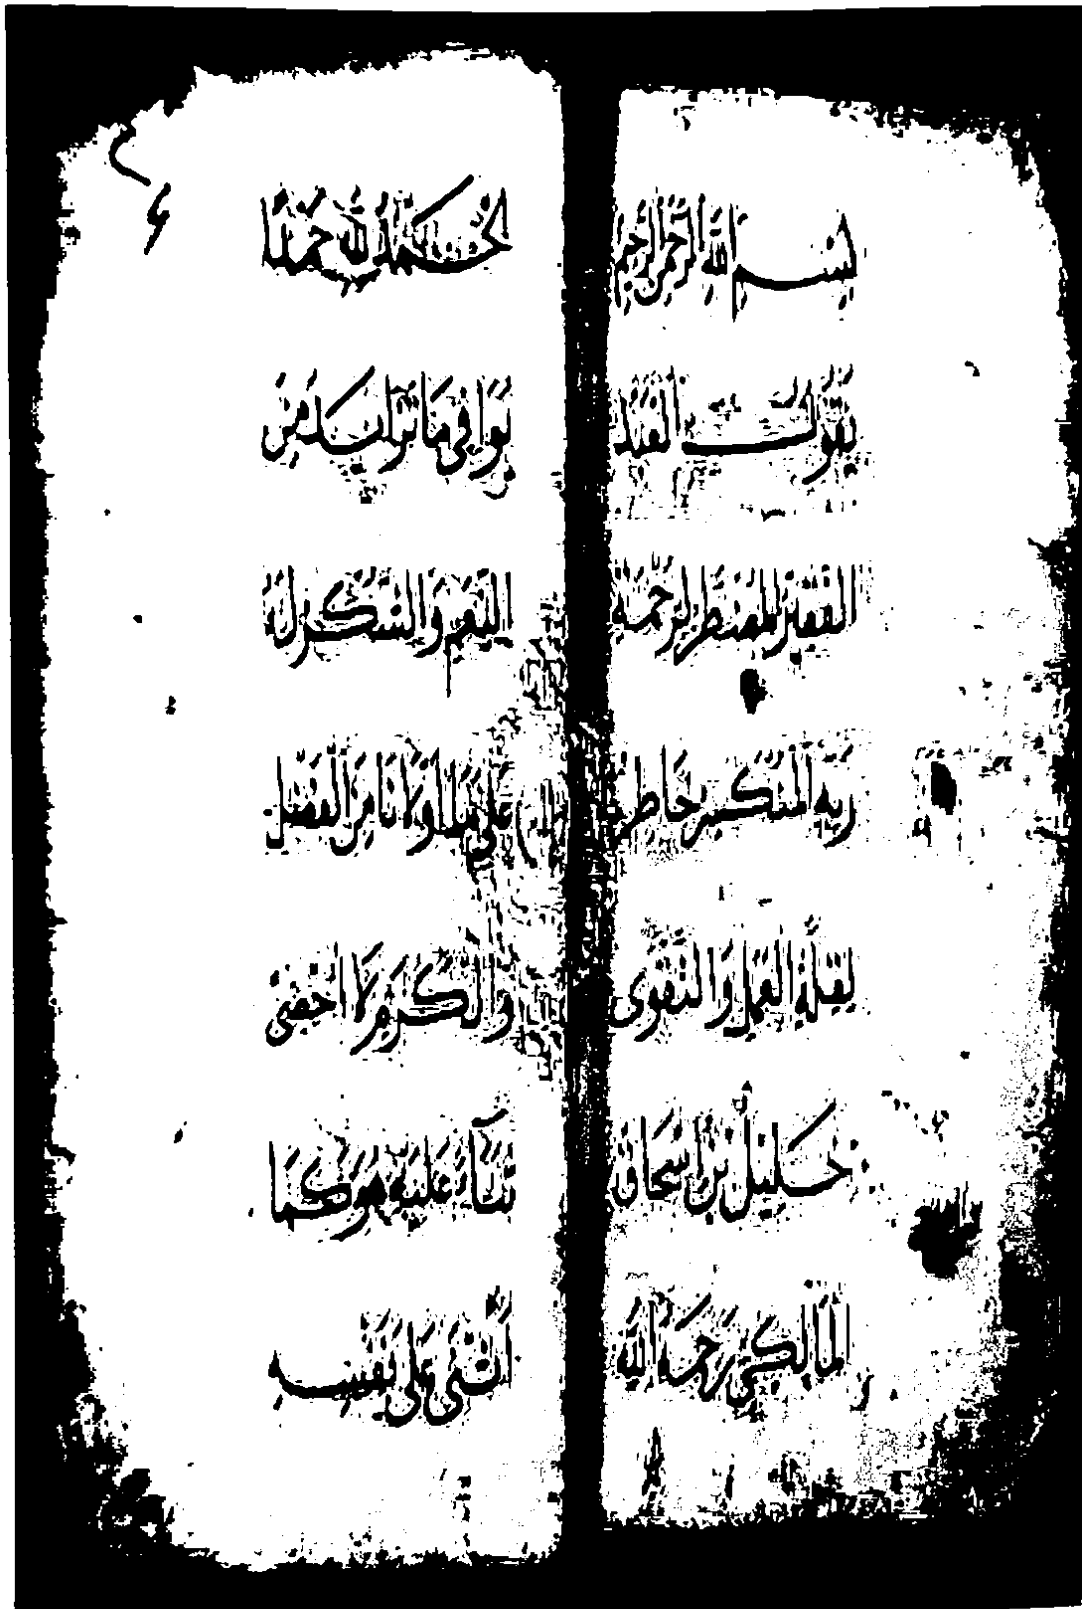 بِسْمِ اللَّهِ الرَّحْمَنِ الرَّحِيمِ
يَقُولُ العَبْدُ
الفَقِيرُ المُضْطَرُّ لِرَحْمَةِ
رَبِّهِ المُنْكَسِرُ خَاطِرُهُ
لِقِلَّةِ العَمَلِ وَالتَّقْوَى
خَلِيلُ بْنُ إِسْحَاقَ
المَالِكِيُّ رَحِمَهُ اللَّهُ
الحَمْدُ لِلَّهِ حَمْدًا
يُوَافِي مَا تَزَايَدَ مِنَ
النِّعَمِ وَالشُّكْرُ لَهُ
عَلَى مَا أَوْلَانَا مِنَ الفَضْلِ
وَالكَرَمِ لَا أُحْصِي
ثَنَاءً عَلَيْهِ هُوَ كَمَا
أَثْنَى عَلَى نَفْسِهِ